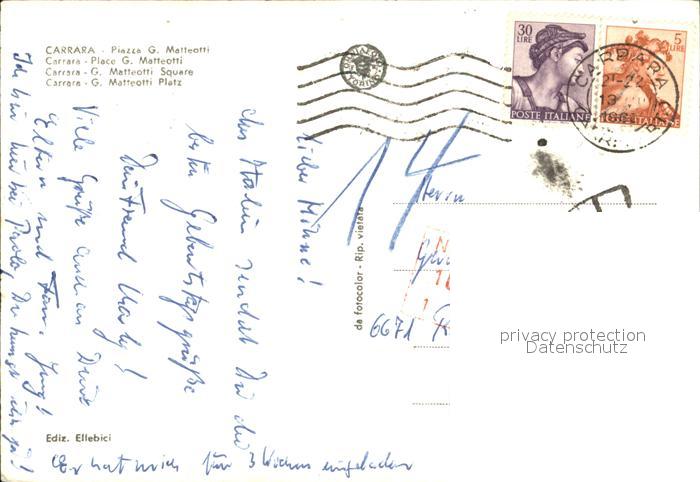 CARRARA - Piazza G. Matteotti
Carrara - Place G. Matteotti
Carrara - G. Matteotti Square
Carrara - G. Matteotti Platz
30
LIRE
POSTE ITALIANE
5
LIRE
ITALIANE
CARRARA
13
14
Lieber Michne!
Aus Italien sendet Dir die
besten Geburtstagsgrüße
Dein Freund
Viele Grüße auch an Deine
Eltern und Fam. Jung!
Ich bin hier bei Paolo, Du kennst ihn ja!
Er hat mich für 3 Wochen eingeladen
Herrn
6671
da fotocolor - Rip. vietata
Ediz. Ellebici
privacy protection
Datenschutz